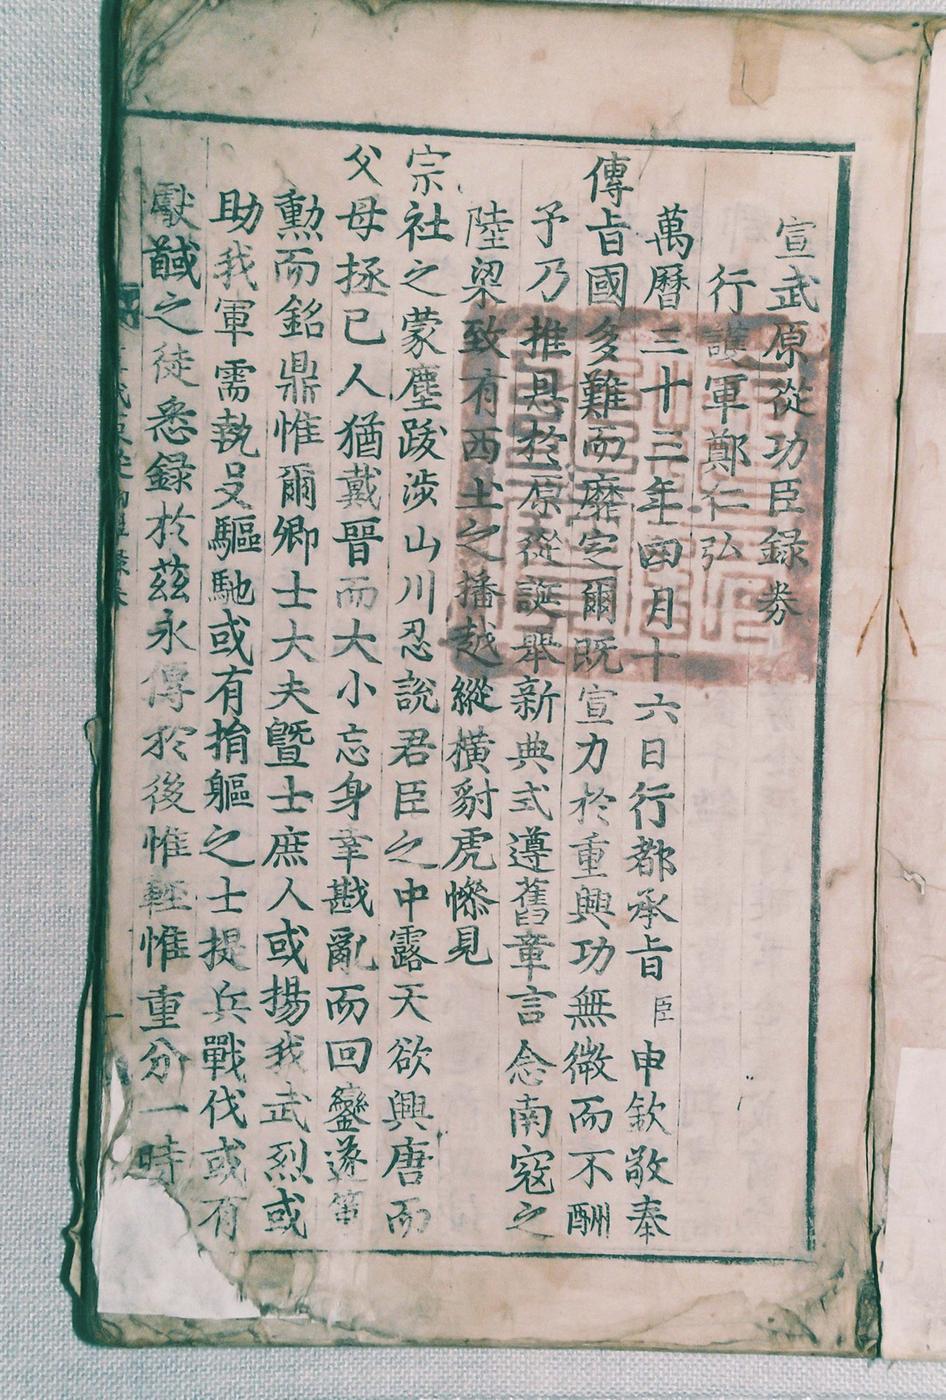 宣武原從功臣録券
行護軍鄭仁弘
萬曆三十三年四月十六日行都承旨臣申欽敬奉
傳旨國多難而靡定爾旣宣力於重興功無微而不酬
予乃推恩於原從誕擧新典式遵舊章言念南寇之
陸梁致有西土之播越縱橫豺虎慘見
宗社之蒙塵跋涉山川忍說君臣之中露天欲興唐而
父母拯已人猶戴晉而大小忘身幸戡亂而回鑾遂策
勳而銘鼎惟爾卿士大夫曁士庶人或揚我武烈或
助我軍需執殳驅馳或有捐軀之士提兵戰伐或有
獻馘之徒悉録於茲永傳於後惟輕惟重分一時